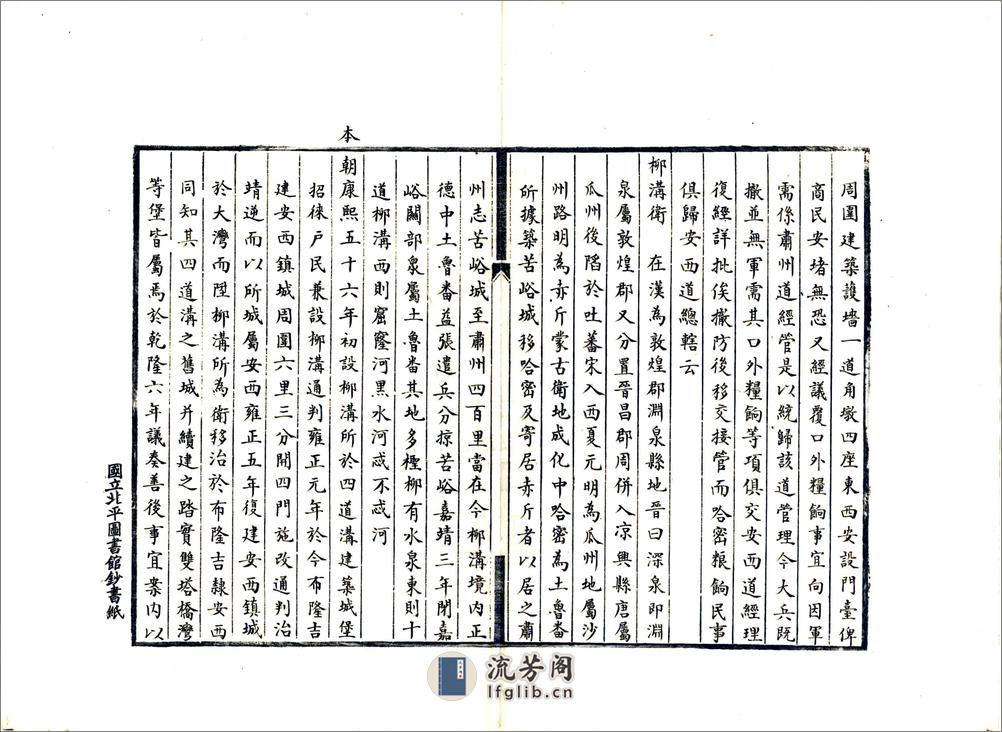 周圍建築護墻一道角墩四座東西安設門臺俾
商民安堵無恐又經議覆口外糧餉事宜向因軍
需係肅州道經管是以統歸該道管理今大兵既
撤並無軍需其口外糧餉等項俱交安西道經理
復經詳批俟撤防後移交接管而哈密粮餉民事
俱歸安西道總轄云
柳溝衛　在漢為敦煌郡淵泉縣地晉曰深泉即淵
泉屬敦煌郡又分置晉昌郡周併入涼興縣唐屬
瓜州後陷於吐蕃宋入西夏元明為瓜州地屬沙
州路明為赤斤蒙古衛地成化中哈密為土魯番
所據築苦峪城移哈密及寄居赤斤者以居之肅
州志苦峪城至肅州四百里當在今柳溝境内正
德中土魯番益張遣兵分掠苦峪嘉靖三年閉嘉
峪關部泉屬土魯番其地多檉柳有水泉東則十
道柳溝西則窟窿河黑水河忒不忒河
本
朝康熙五十六年初設柳溝所於四道溝建築城堡
招徠戶民兼設柳溝通判雍正元年於今布隆吉
建安西鎮城周圍六里三分開四門施改通判治
靖逆而以所城屬安西雍正五年復建安西鎮城
於大灣而陞柳溝所為衛移治於布隆吉隸安西
同知其四道溝之舊城并續建之踏實雙塔橋灣
等堡皆屬焉於乾隆六年議奏善後事宜案内以
國立北平圖書館鈔書紙
流芳阁
lfglib.cn